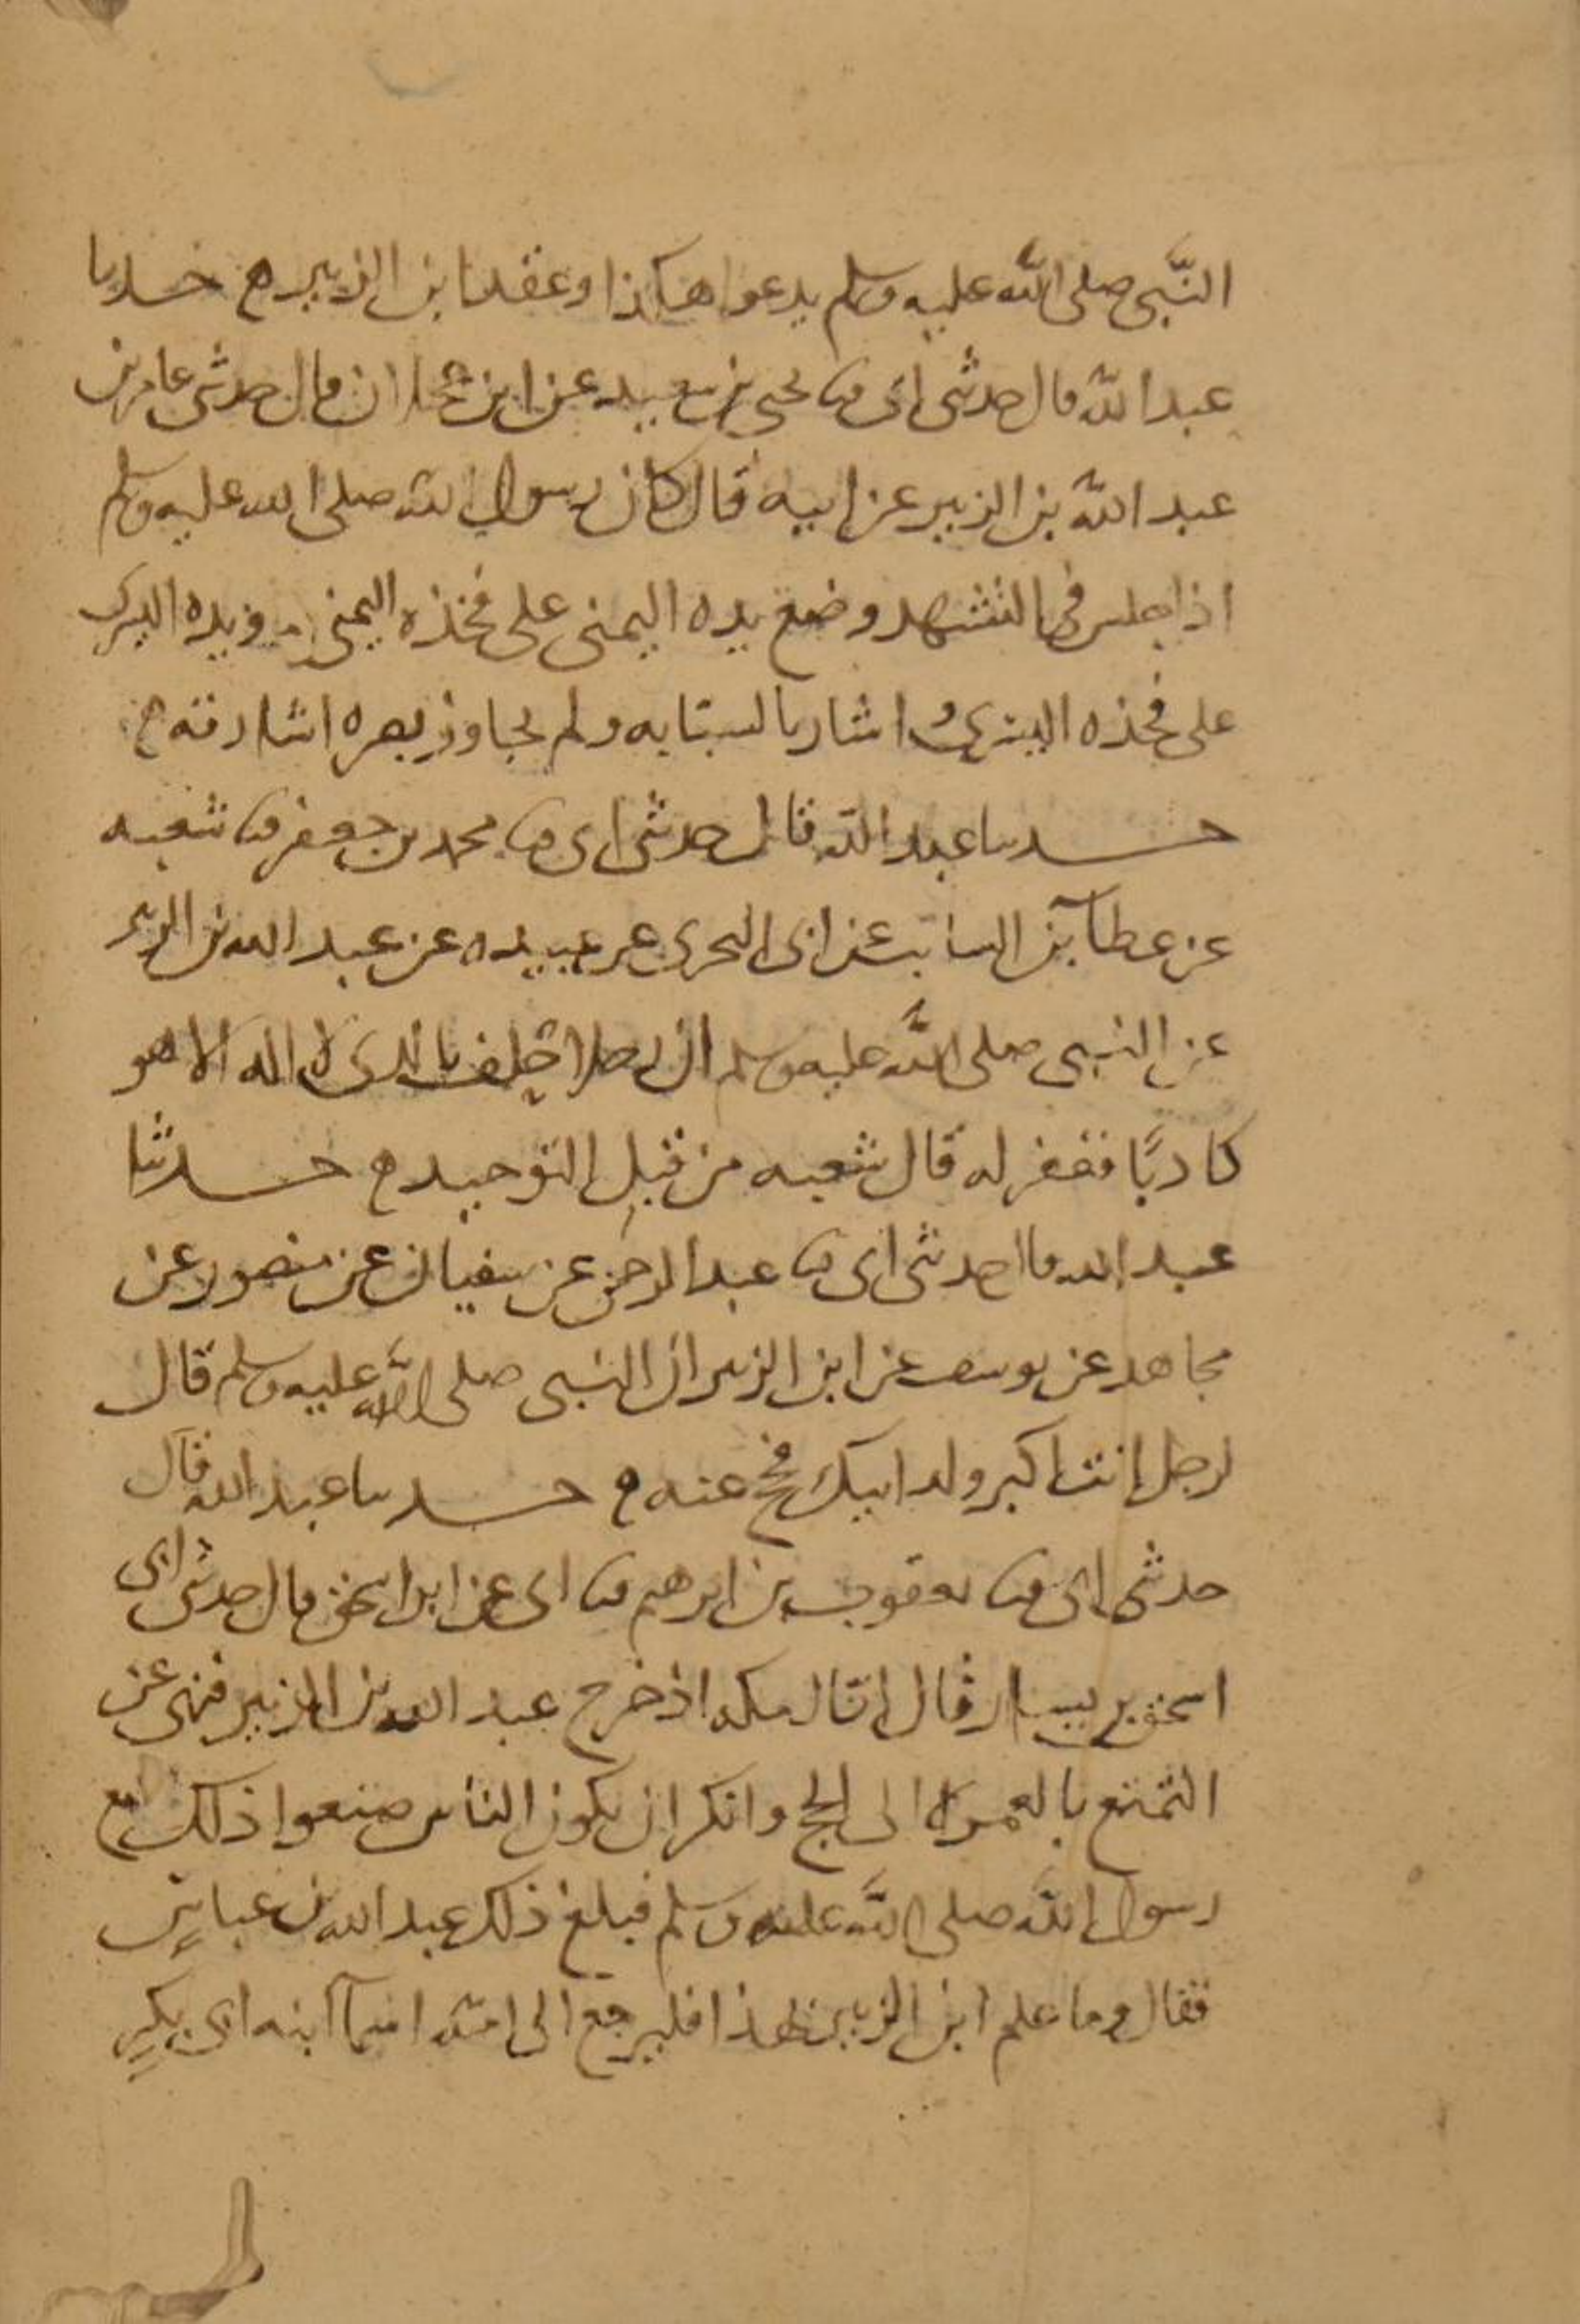 النبي صلى الله عليه وسلم يدعوا هكذا وعقد ابن الزبير ه حدثنا
عبد الله قال حدثني ابي ثنا يحيى بن سعيد عن ابن عجلان قال حدثني عامر بن
عبد الله بن الزبير عن ابيه قال كان رسول الله صلى الله عليه وسلم
اذا جلس في التشهد وضع يده اليمنى على فخذه اليمنى ويده اليسرى
على فخذه اليسرى واشار بالسبابه ولم يجاوز بصره اشارته ه
حدثنا عبد الله قال حدثني ابي ثنا محمد بن جعفر ثنا شعبه
عن عطآ بن السائب عن ابي البختري عن عبيده عن عبد الله بن الزبير
عن النبي صلى الله عليه وسلم ان رجلا حلف بالذي لا اله الا هو
كاذبا فغفر له قال شعبه من قبل التوحيد ه حدثنا
عبد الله قال حدثني ابي ثنا عبد الرحمن عن سفيان عن منصور عن
مجاهد عن يوسف عن ابن الزبير ان النبي صلى الله عليه وسلم قال
لرجل انت اكبر ولد ابيك فحج عنه ه حدثنا عبد الله قال
حدثني ابي ثنا يعقوب بن ابرهيم ثنا ابي عن ابن اسحق قال حدثني ابي
اسحق بن يسار قال انا لبمكه اذ خرج عبد الله بن الزبير فنهى عن
التمتع بالعمره الى الحج وانكر ان يكون الناس صنعوا ذلك مع
رسول الله صلى الله عليه وسلم فبلغ ذلك عبد الله بن عباس
فقال وما علم ابن الزبير بهذا فليرجع الى امه اسمآ ابنه ابي بكر